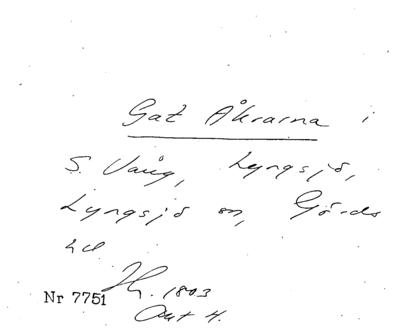 Gat Åkrarna i
S. Vång, Lyngsjö,
Lyngsjö sn, Gärds
hd
1803
Nr 7751
Akt 4.